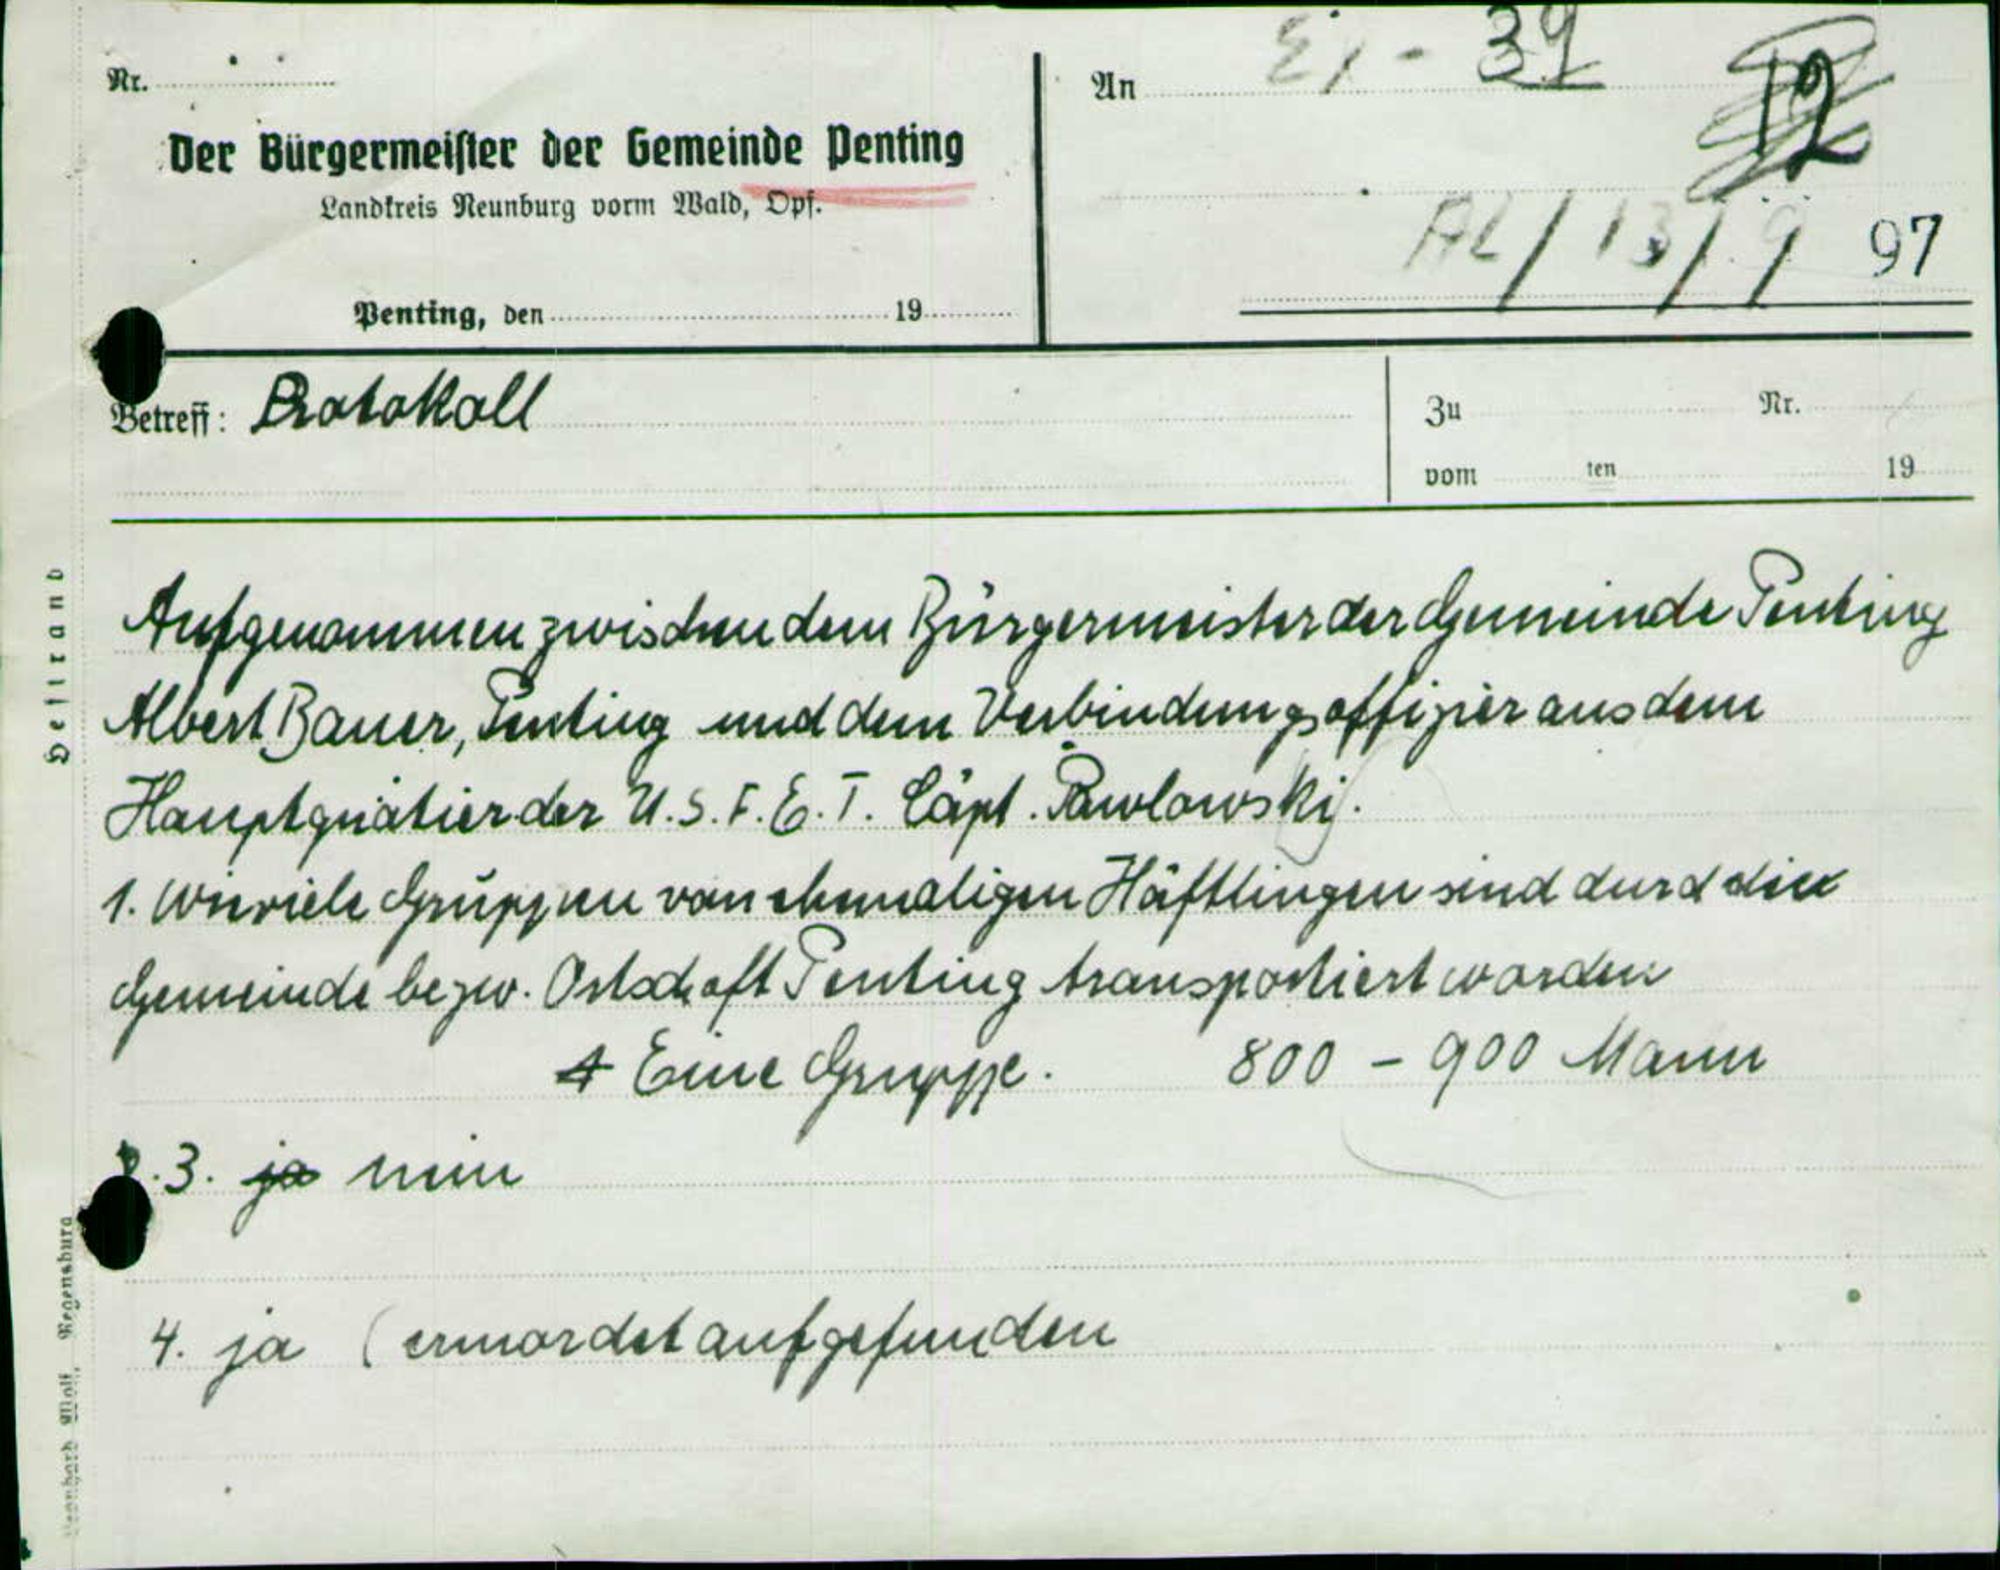 Nr.
Der Bürgermeister der Gemeinde Penting
Landkreis Neunburg vorm Wald, Opf.
Penting, den 19
An
39
12
AL / 13 / 9 97
Betreff: Protokoll
Zu Nr.
vom ten 19
Aufgenommen zwischen dem Bürgermeister der Gemeinde Penting
Albert Bauer, Penting und dem Verbindungsoffizier aus dem
Hauptquatier der U.S.F.E.T. Cäpt. Pawlowski.
1. Wieviele Gruppen von ehemaligen Häftlingen sind durch die
Gemeinde bezw. Ortschaft Penting transportiert worden
Eine Gruppe. 800 – 900 Mann
3. ja nein
4. ja (ermordet aufgefunden
Heftrand
Leonhard Wolf, Regensburg